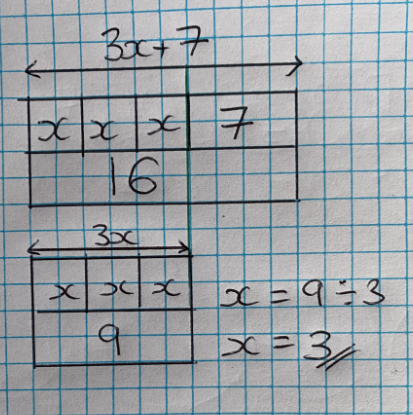 3x+7
x x x 7
16
3x
x x x
x = 9 ÷ 3
9
x = 3